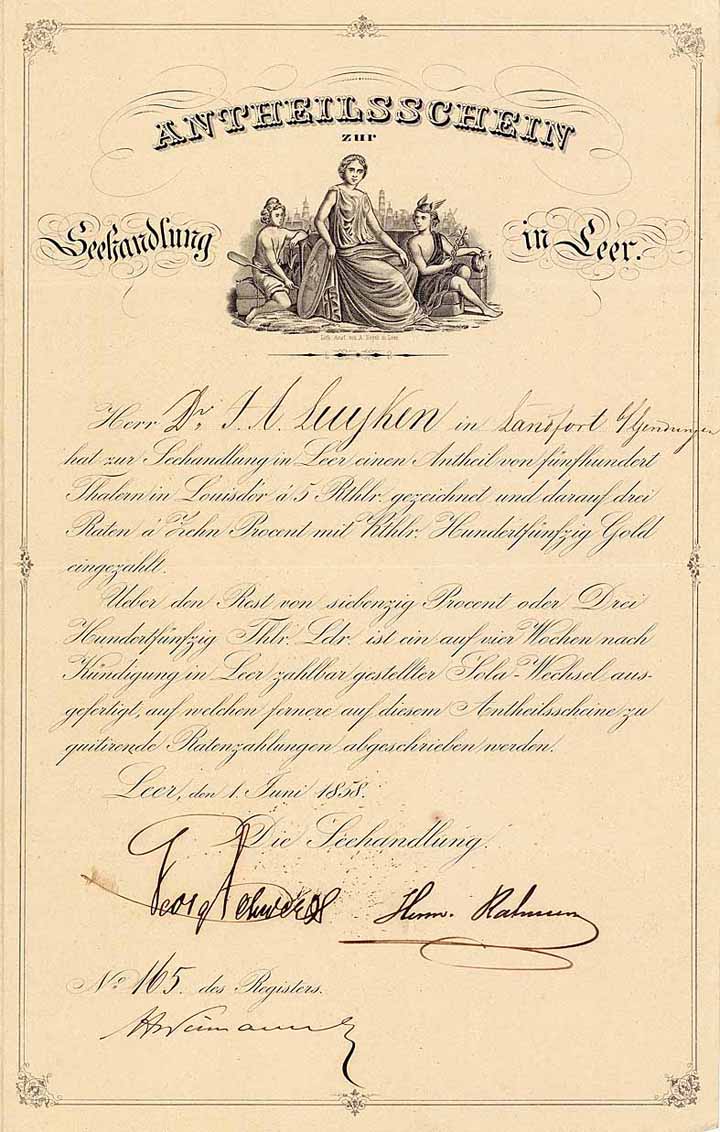 ANTHEILSSCHEIN
zur
Seehandlung in Leer.
Herr Dr. J. A. Luyken in Landfort b/Gendringen
hat zur Seehandlung in Leer einen Antheil von fünfhundert
Thalern in Louisd'or á 5 Rthlr. gezeichnet und darauf drei
Raten á Zehn Procent mit Rthlr. Hundertfünfzig Gold
eingezahlt.
Ueber den Rest von siebenzig Procent oder Drei
Hundertfünfzig Thlr. Ldr. ist ein auf vier Wochen nach
Kündigung in Leer zahlbar gestellter Sola-Wechsel aus-
gefertigt, auf welchen fernere auf diesem Antheilsscheine zu
quitirende Ratenzahlungen abgeschrieben werden.
Leer, den 1. Juni 1858.
Die Seehandlung.
Georg Herm.
No. 165. des Registers.